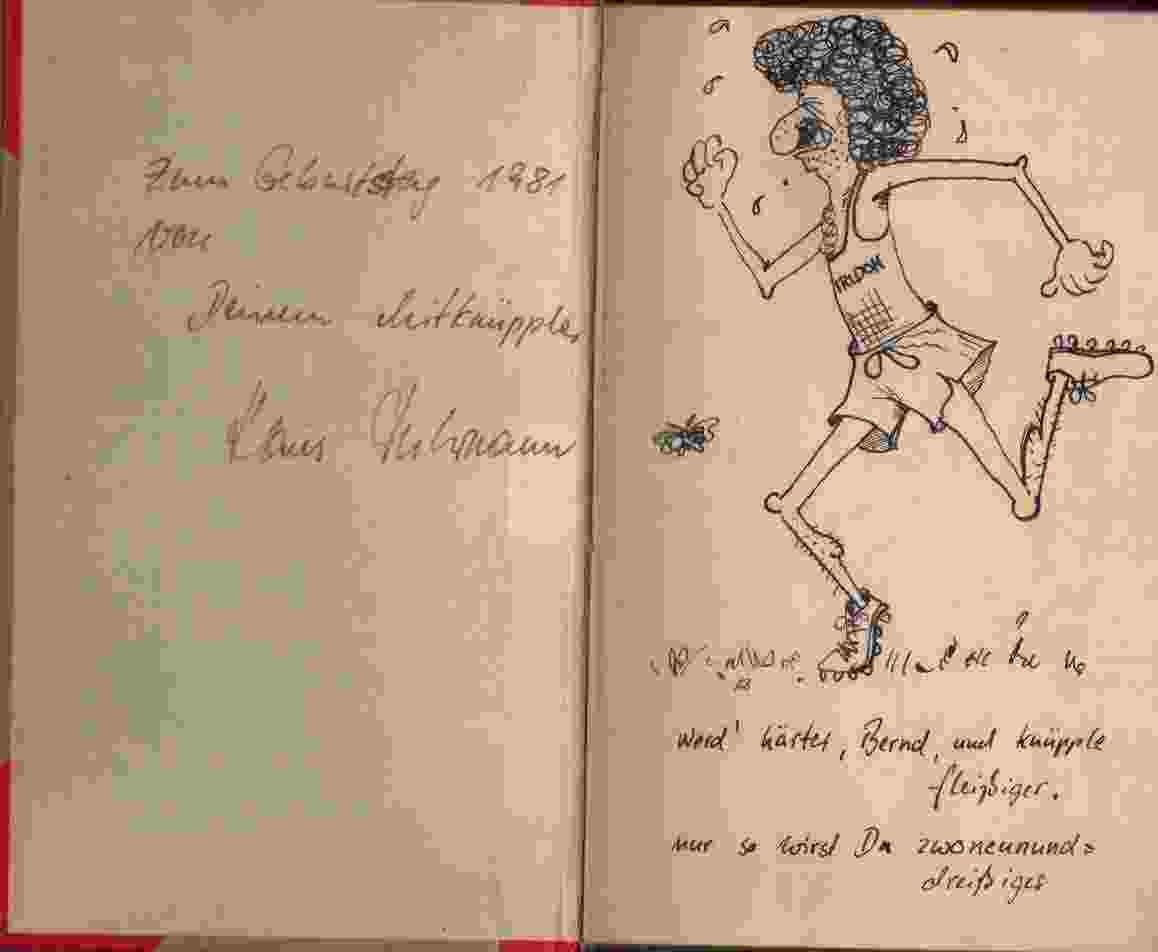 Zum Geburtstag 1981
von
Deinem Mitknüppler
Klaus
TRIDOM
werd' härter, Bernd, und knüpple
fleißiger.
nur so wirst Du zwoneunund=
dreißiger